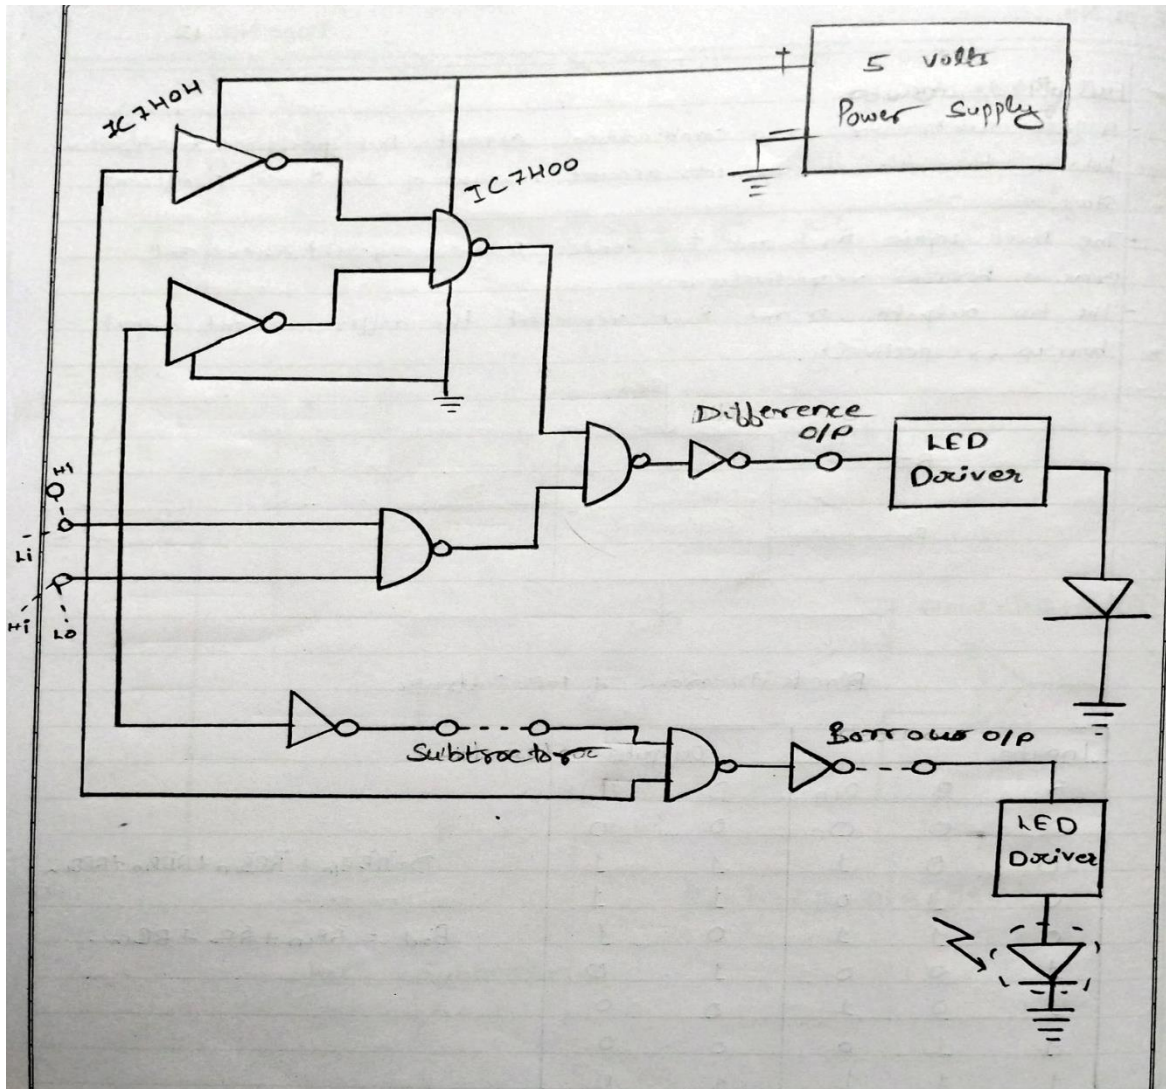 5 volts
Power Supply
+
IC7404
IC7400
Difference
O/P
LED
Driver
Hi
Li
Hi
Lo
Subtractor
Borrow O/P
LED
Driver